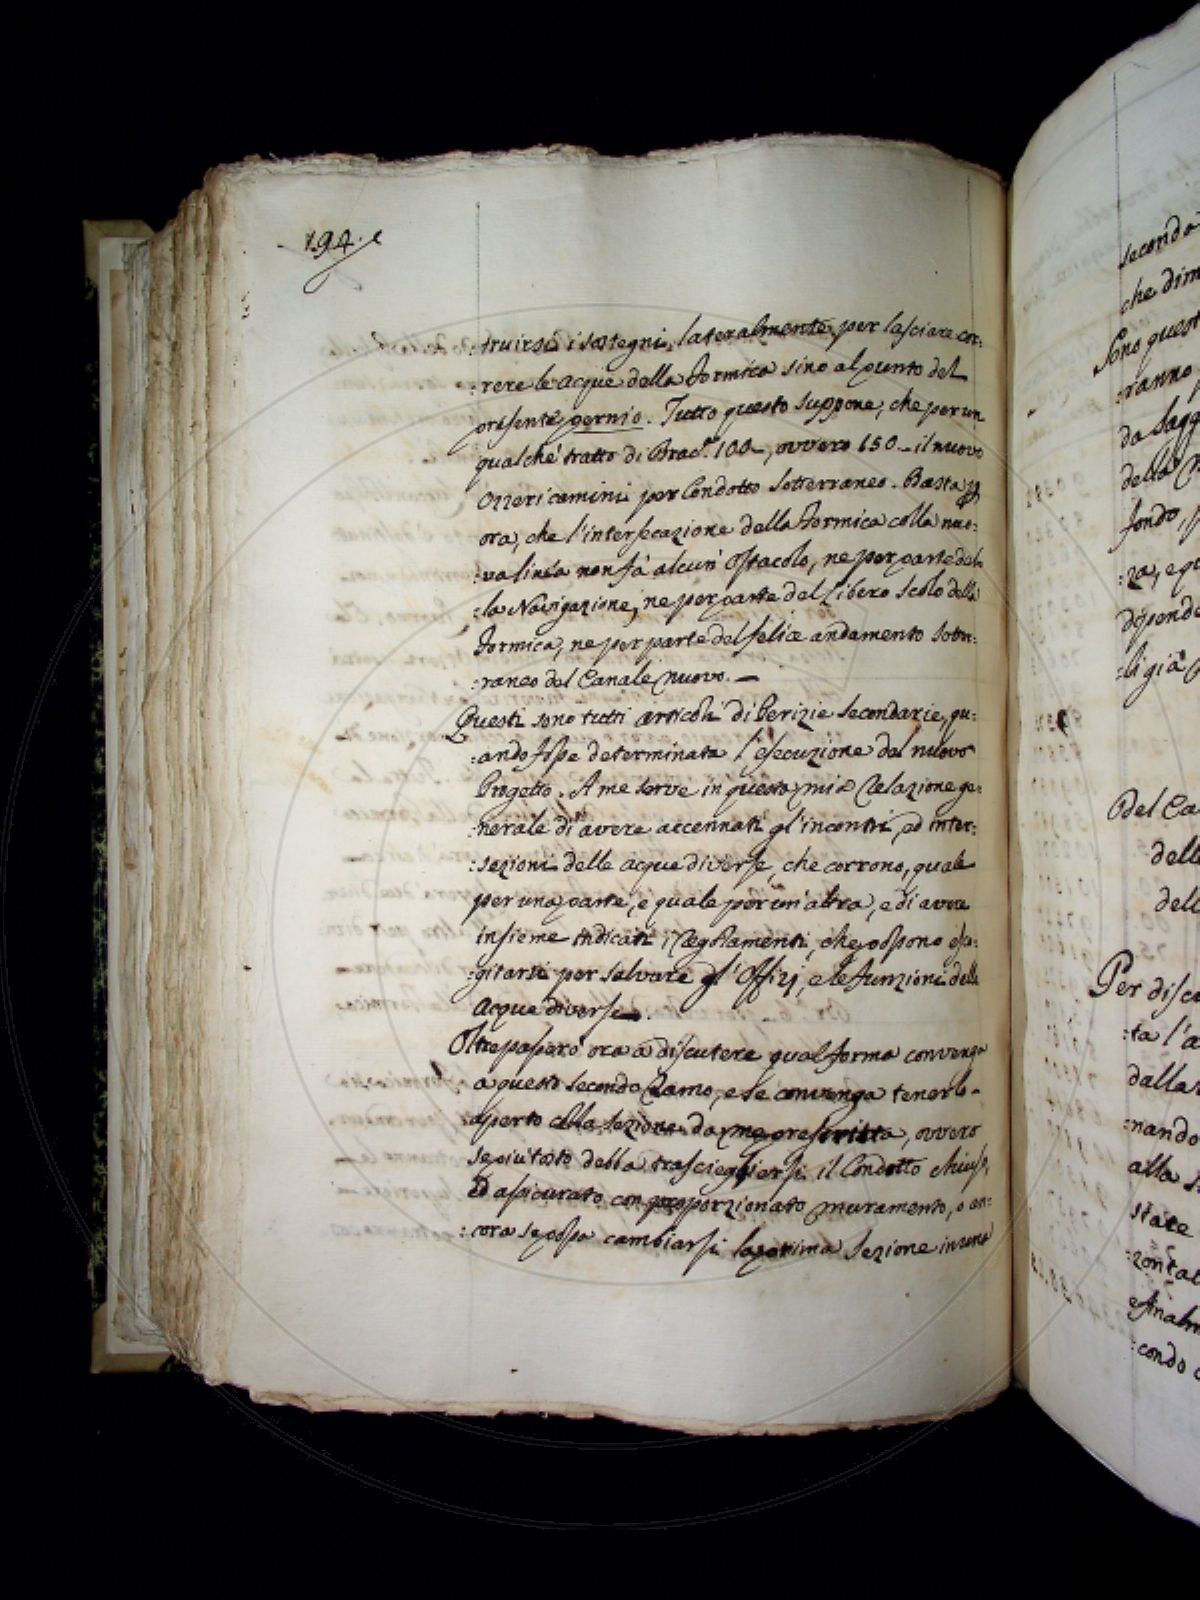 194.
:truirsi i sostegni lateralmente per lasciare cor:
:rere le acque della Formica sino al punto del
presente pernio. Tutto questo suppone, che per un
qualche tratto di Brac.ª 100, ovvero 150 il nuovo
Ozzeri camini per Condotto sotterraneo. Basta p
ora, che l'intersecazione della Formica colla nuo:
:va linea non fà alcun' Ostacolo, ne per parte del:
:la Navigazione, ne per parte del Libero Scolo della
Formica, ne per parte del felice andamento Soter:
:raneo del Canale nuovo.
Questi sono tutti articoli di Perizie secondarie, qu:
:ando fosse determinata l'esecuzione del nuovo
Progetto. A me serve in questa mia Relazione ge:
:nerale di avere accennati gl'incontri, ed inter:
:sezioni delle acque diverse, che corrono, quale
per una parte, e quale per un'altra, e di avere
insieme indicati i Regolamenti, che possono esco:
:gitarsi per salvare gl'Offizj, e le funzioni delle
Acque diverse.
Oltrepasserò ora a discutere qual forma convenga
a questo secondo Ramo, e se convenga tenerlo
aperto colla sezione da me prescritta, ovvero
se piutosto debba trascieglersi il Condotto chiuso,
ed assicurato con proporzionato muramento, o an:
:cora se possa cambiarsi la prima Sezione in
secondo
che dim
Sono quest
:ranno
da Sagg
della
fondo,
:za, e qu
dipende
:li già
Del Ca
delle
dell
Per discu
:ta l'a
dalla
:nando
alla s
state
:zontal
e finalm
:condo